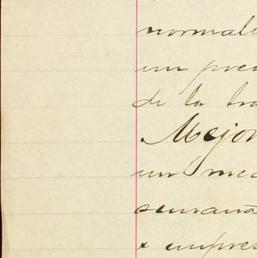 normali
un pre
de la tra
Mejor
un med
semana
e empres